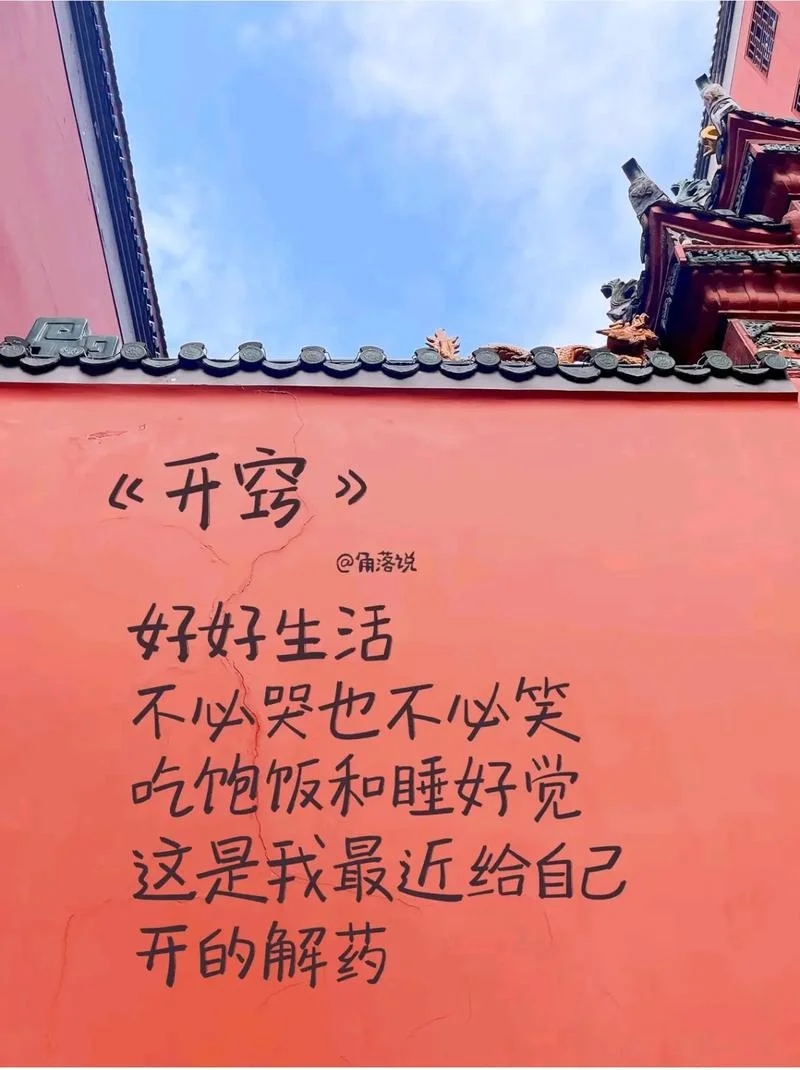 《开窍》
@角落说
好好生活
不必哭也不必笑
吃饱饭和睡好觉
这是我最近给自己
开的解药